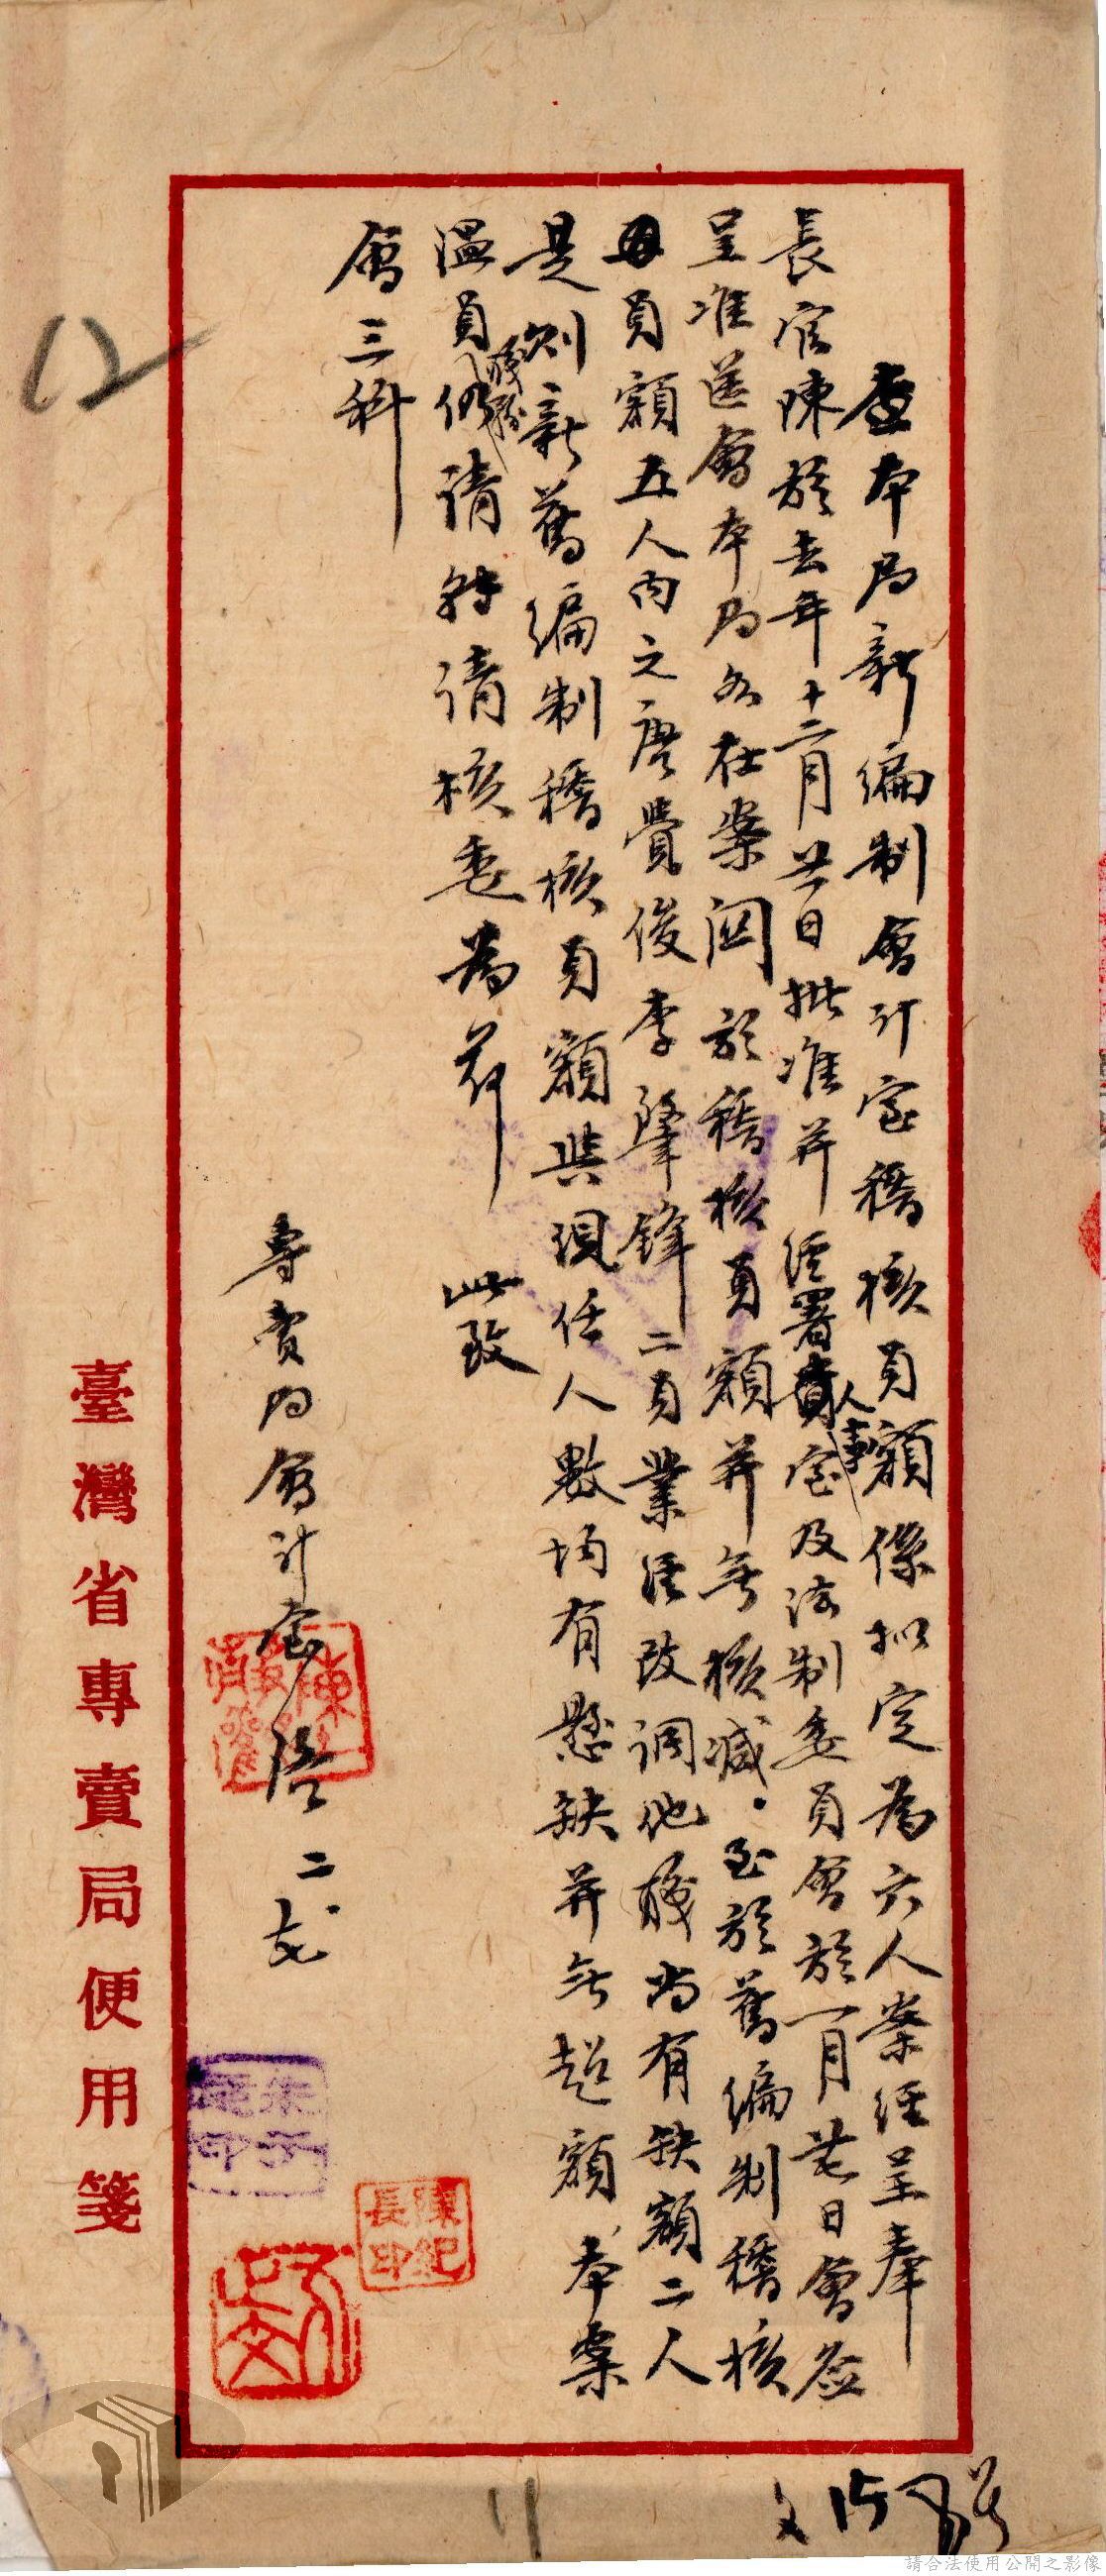 查本局新編制會計室稽核員額係扣定為六人案經呈奉
長官陳於去年十二月廿日批准并經署人事室及法制委員會於一月廿日會签
呈准送會本局各在案関於稽核員額并無核減。至於舊編制稽核
員額五人内之唐賞俊李肇鋒二員業經改調他職尚有缺額二人
是則新舊編制稽核員額與現任人數均有懸缺并無超額本案
温員職務仍請轉請核委為荷 此致
會三科
專賣局會計室啓 二、
臺灣省專賣局便用箋
陳紀長印
12
11
請合法使用公開之影像